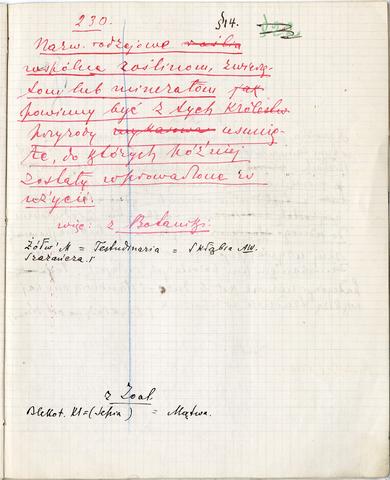 230. §14.
Nazw. rodzajowe
wspólne roślinom, zwierzę-
tom lub minerałom jak
powinny być z tych Królestw
przyrody wykasowane usunię-
te, do których później
zostały wprowadzone w
użycie.
więc: z Botaniki.
Żółw' M = Testudinaria = Skłąbia AW.
z Zool.
Blekot. Kl = (Sepia) = Mątwa.